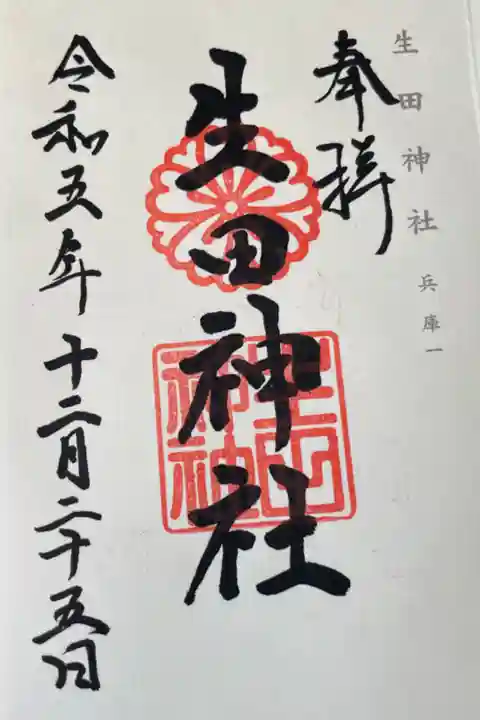 生田神社 兵庫一
奉拝
生田神社
令和五年十二月二十五日